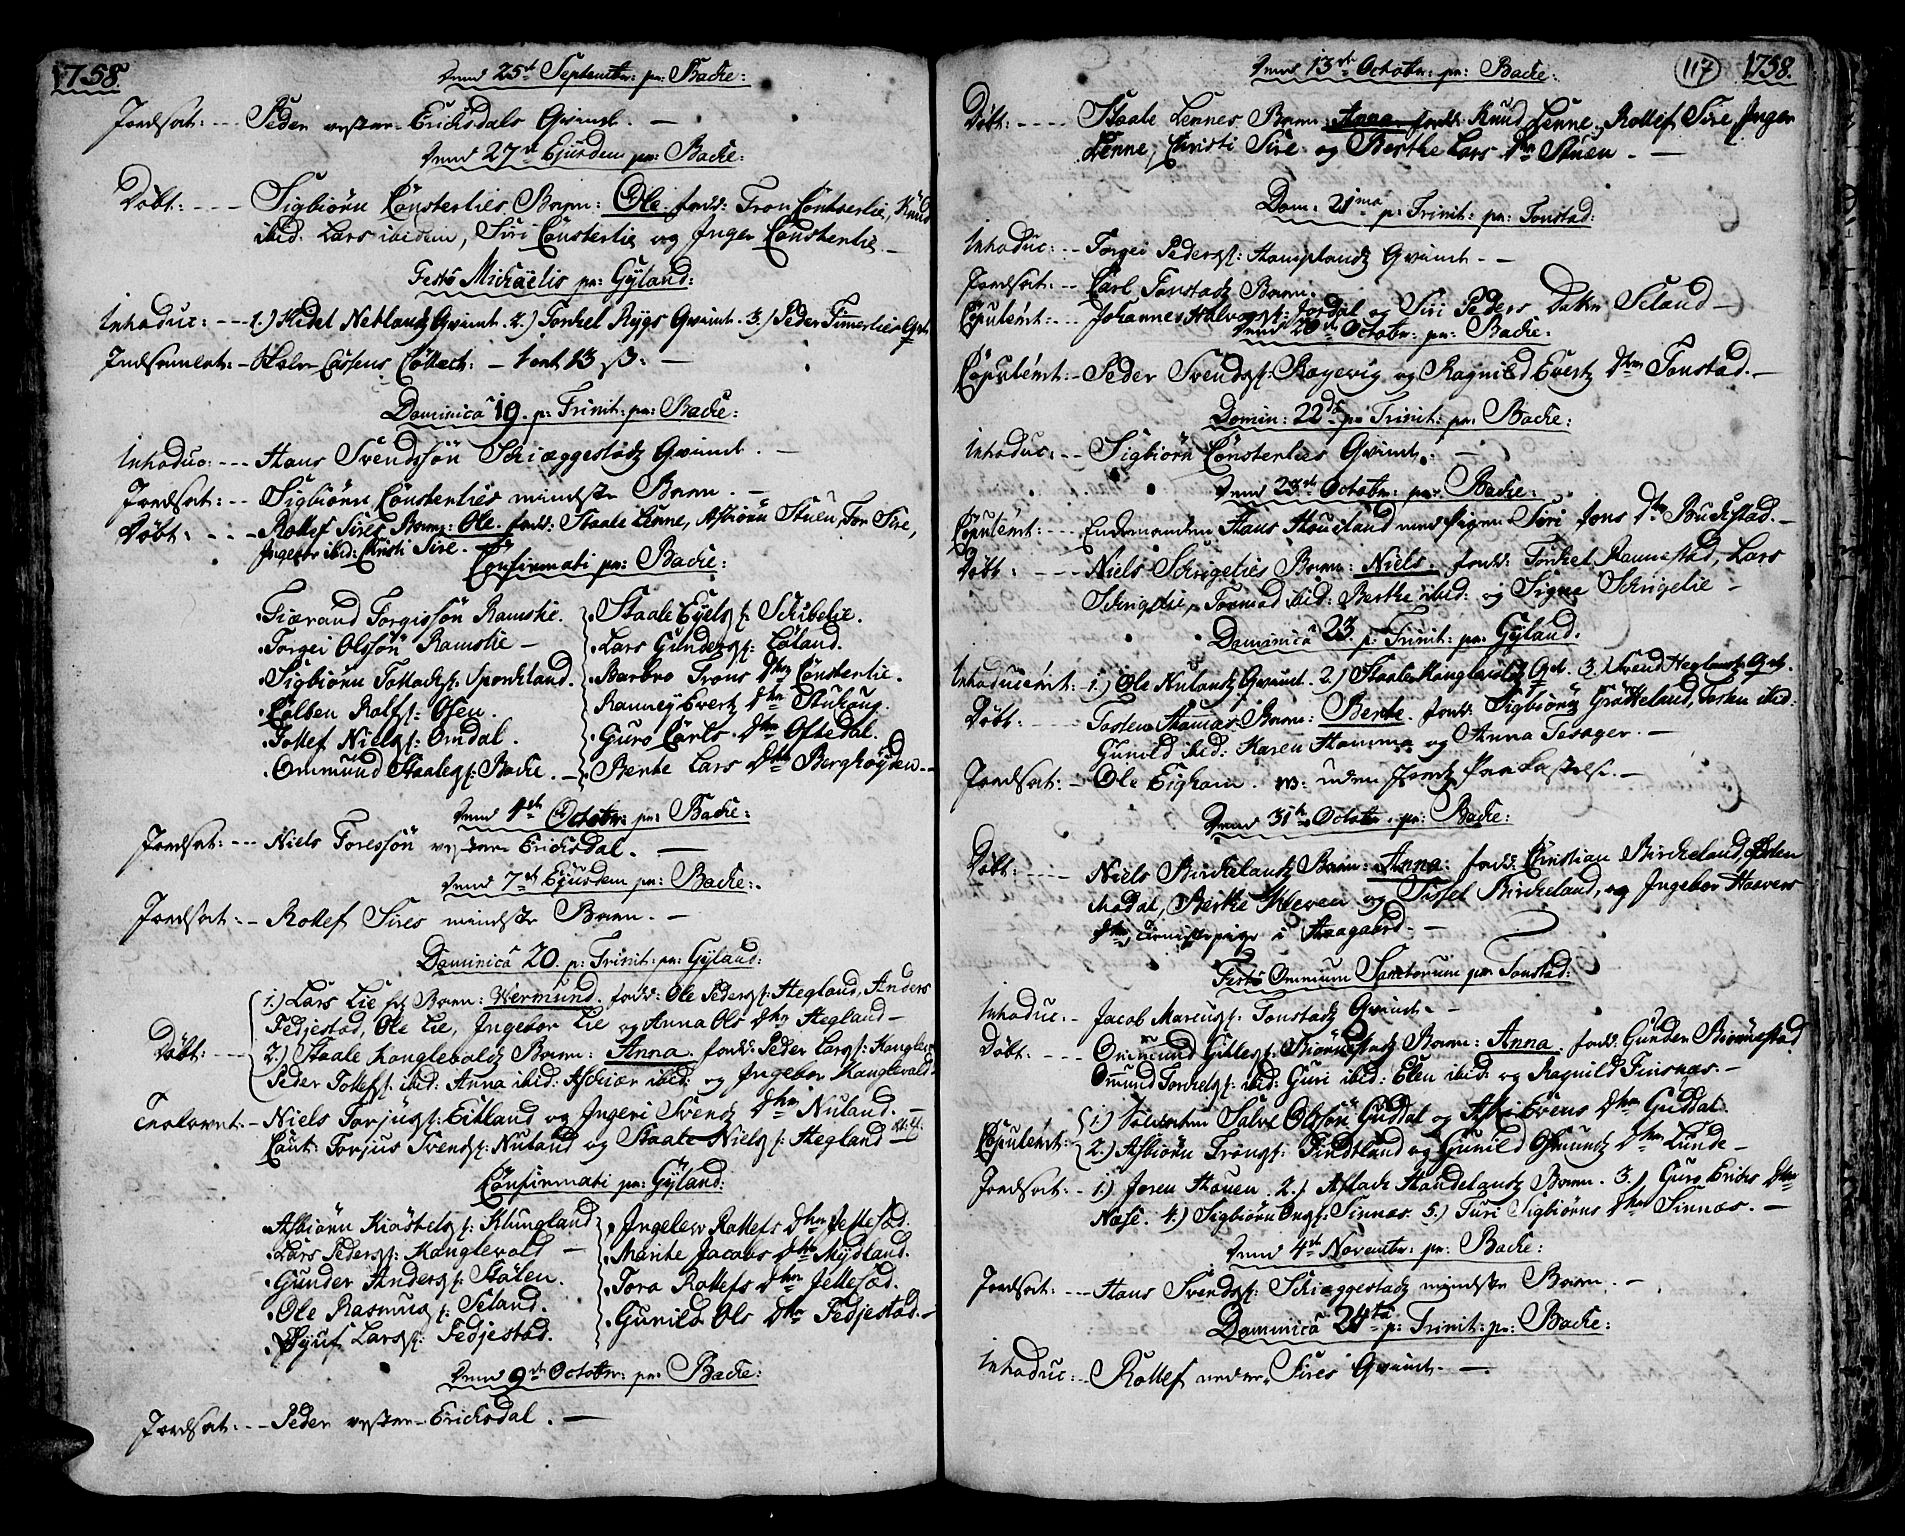 1758.
Dend 25de Septembr: pr: Backe:
Jordsat: --- Peder vester-Ericksdals Qvinde. —
Dend 27de Ejusdem pr: Backe:
Döbt: --- Sigbiörn Cönsterlies Barn: Ole. fadd: Tron Cönsterlie, Knud
ibid: Lars ibidem, Siri Cönsterlie og Inger Cönsterlie —
Festo Michaëlis pr: Gÿland:
Introduc: --- 1.) Kidel Netlandz Qvinde. 2.) Torkel Rÿgs Qvinde. 3.) Peder Timmerlies Qv:
Indsamlet: - Cassens Collect: — 1 ort 13 ß: —
Dominica 19. p: Trinit: pr: Backe:
Introduc: --- Hans Svendssön Schieggestadz Qvinde. —
Jordsat: -- Sigbiörn Cönsterlies mindste Barn. —
Döbt: --- Rollef Sires Barn: Ole. fadd: Staale Lenne, Asbiörn Stuen, Tor Sire,
Ingebor ibid: Christi Sire. —
Confirmati pr: Backe:
Tiærand Torgissön Ramslie.
Torgei Olssön Ramslie —
Sigbiörn Tollachs: Sporchland.
Colben Rolfs: Osen.
Tollef Niels: Omdal.
Ommund Staales: Backe. —
Staale Eÿels: Schibelie.
Lars Gunders: Löland.
Barbro Trons Dtr Cönsterlie.
Ranneÿ Evertz Dtr Stuhoug.
Guro Carls Dtr Oftedal.
Bente Lars Dtr Berghöÿden —
Dend 4de Octobr: pr: Backe:
Jordsat: --- Niels Toressön vester Ericksdal. —
Dend 7de Ejusdem pr: Backe:
Jordsat: - Rollef Sires mindste Barn. —
Dominica 20. p: Trinit: pr: Gÿland:
1.) Lars Lie Barn: Wermund. fadd: Ole Peders: Hegland, Anders
Fedjestad, Ole Lie, Ingebor Lie og Anna Ols Dtr Hegland —
Döbt: --- 2.) Staale Kanglevaldz Barn: Anna. fadd: Peder Lars: Kanglev:
Peder Tollefs: ibid: Anna ibid: Aschier ibid: og Ingebor Kanglevald —
Trolovet: - Niels Torjus: Eitland og Ingeri Svendz Dtr Nuland. —
Caut: Torjus Svends: Nuland og Staale Niels: Hegland
Confirmati pr: Gÿland:
Asbiörn Kiöstels: Klungland
Lars Peders: Kanglevald —
Gunder Anders: Stölen.
Ole Rasmus s: Seland.
Lars: Fedjestad.
Ingelev Rollefs Dtr Jellesad.
Marite Jacobs Dtr Mÿdland.
Tora Rollefs Dtr Jellesad.
Gunild Ols Dtr Fedjestad. —
Dend 9de Octobr: pr: Backe:
Jordsat: -- Peder vester-Ericksdal. —
117
1758.
Dend 13de Octobr: pr: Backe:
Döbt: ---- Staale Lennes Barn: Anna. fadd: Knud Lenne, Rollef Sire, Inger
Lenne, Christi Sire og Berthe Lars Dtr Stuen. —
Dom: 21ma p: Trinit: pr: Tonstad:
Introduc: -- Torgei Peders: Homplandz Qvinde. —
Jordsat: -- Carl Tonstadz Barn.
Copuleret: -- Johannes Halvors: Josdal og Siri Peders Datter Seland —
Dend 20de Octobr: pr: Backe:
Copuleret: - Peder Svends: Røgevig og Ragnild Evertz Dtr Tonstad. —
Domin: 22da p: Trinit: pr: Backe:
Introduc: -- Sigbiörn Cönsterlies Qvinde. —
Dend 23de Octobr: pr: Backe:
Copuleret: --- Enkemanden Hans Houeland med Pigen Siri Jons Dtr Buckstad. —
Döbt: --- Niels Schregelies Barn: Niels. fadd: Torkel Ramestad, Lars
Schregelie, Tormod ibid: Berthe ibid: og Signe Schregelie —
Dominica 23. p: Trinit: pr: Gÿland.
Introduceret: - 1.) Ole Nulandz Qvinde. 2.) Staale Kanglevaldz Qv: 3.) Svend Heglandz Qv:
Döbt: --- Torsten Hammes Barn: Bente. fadd: Sigbiörn Gröttteland, Torsten ibid:
Gunild ibid: Karen Hamme og Anna Tesager. —
Jordsat: - Ole Eigham. uden Jords Paakastelse. —
Dend 31te Octobr: pr: Backe:
Döbt: --- Niels Birchelandz Barn: Anna. fadd: Christian Bircheland, Østen
Modal, Berthe Kleven og Sissel Bircheland, og Ingebor Haavers
Dtr, tienistepige i Haagaard. —
Festo Omnium Sanctorum pr: Tonstad:
Introduc: - Jacob Marcus: Tonstadz Qvinde. —
Döbt: --- Ommund Gilles: Biörnestadz Barn: Anna. fadd: Gunder Biörnestad,
Omund Torkels: ibid: Guri ibid: Elen ibid: og Ragnild Finsnæs. —
Copuleret: 1.) Soldaten Salve Olssön Guddal og Evens Dtr Guddal.
2.) Asbiörn Trons: Tindtland og Gunild Osmundz Dtr Lunde —
Jordsat: - 1.) Joren Houen. 2.) Aslach Handelandz Barn. 3.) Guro Ericks Dtr
Næse. 4.) Sigbiörn Ons: Sinnæs. 5.) Turi Sigbiörns Dtr Sinnæs. —
Dend 4de Novembr: pr: Backe:
Jordsat: --- Hans Svends: Schieggestadz mindste Barn. —
Dominica 24ta p: Trinit: pr: Backe:
Introduc: - Rollef nedre-Sires Qvinde. —